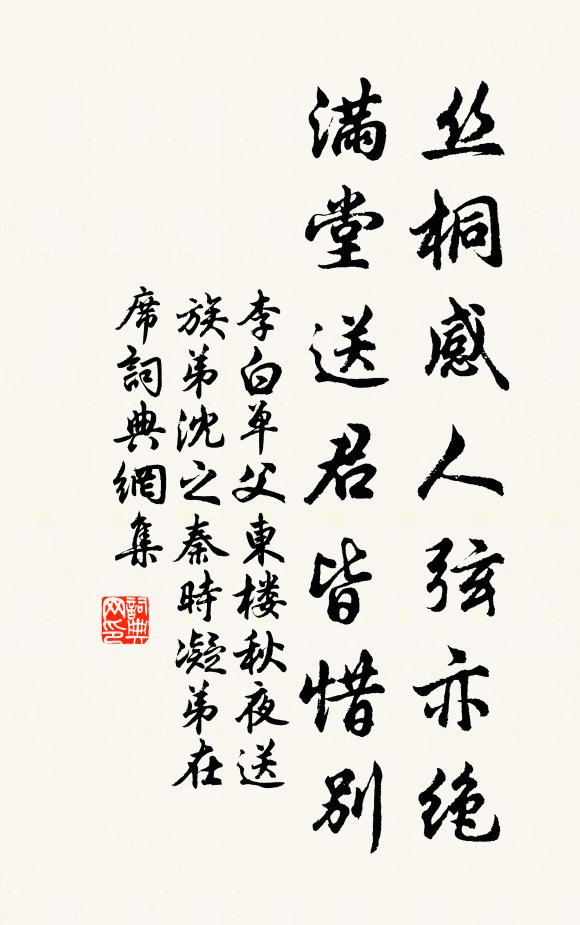 丝桐感人弦亦绝
满堂送君皆惜别
李白单父東楼秋夜送
族弟沈之秦時凝弟在
席詞典網集
詞典网印